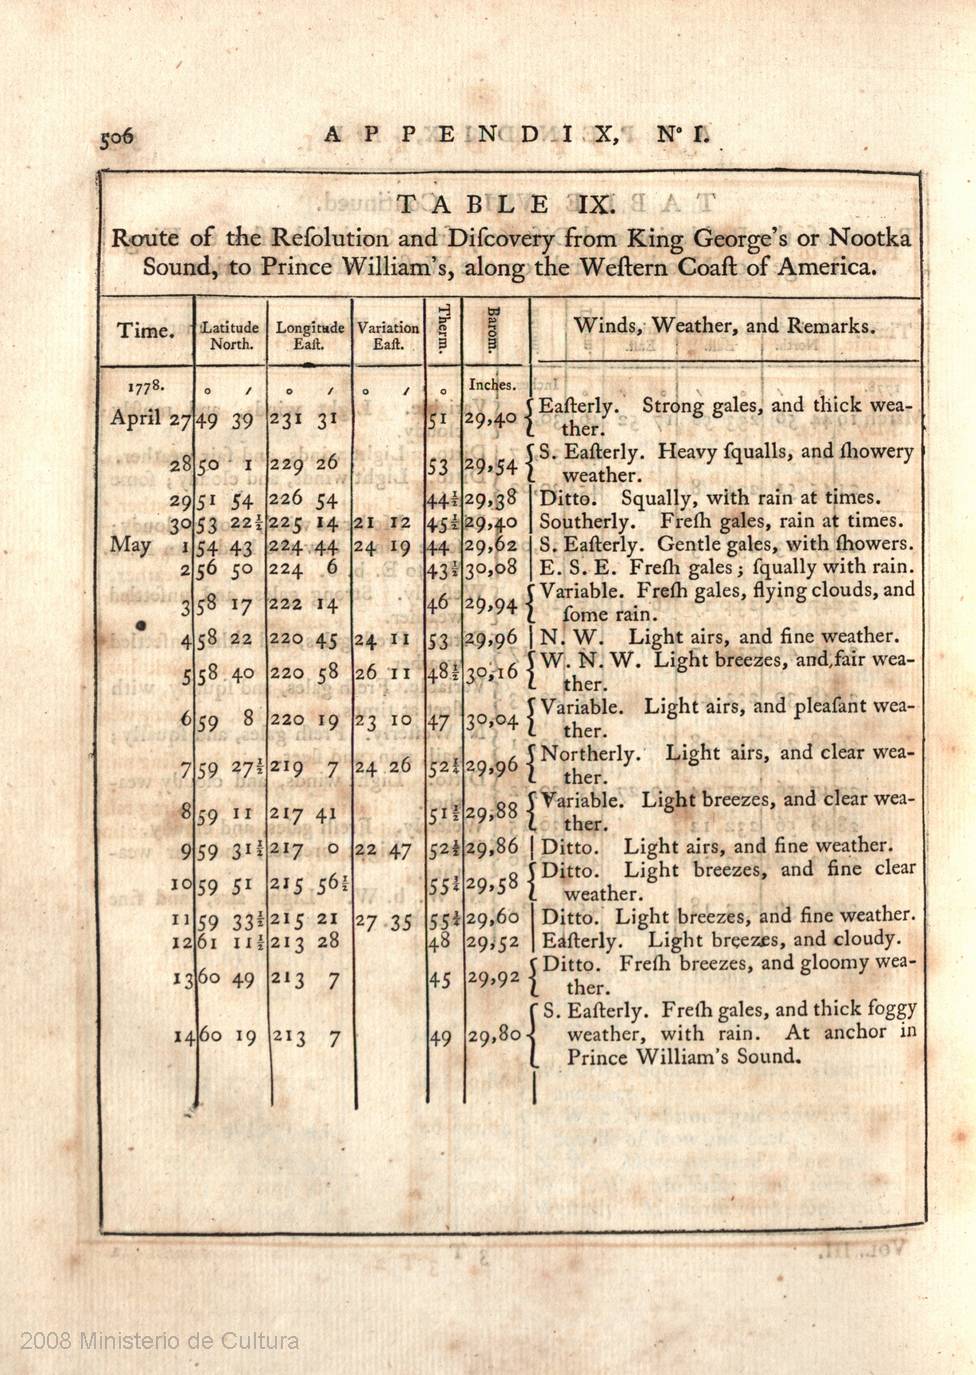 506
APPENDIX, Nº I.
TABLE IX.
Route of the Reſolution and Diſcovery from King George's or Nootka
Sound, to Prince William's, along the Weſtern Coaſt of America.
Time. Latitude North. Longitude Eaſt. Variation Eaſt. Therm. Barom. Winds, Weather, and Remarks.
1778. o / o / o / o Inches.
April 27 49 39 231 31 51 29,40 Eaſterly. Strong gales, and thick wea-
ther.
28 50 1 229 26 53 29,54 S. Eaſterly. Heavy ſqualls, and ſhowery
weather.
29 51 54 226 54 44½ 29,38 Ditto. Squally, with rain at times.
30 53 22½ 225 14 21 12 45½ 29,40 Southerly. Freſh gales, rain at times.
May 1 54 43 224 44 24 19 44 29,62 S. Eaſterly. Gentle gales, with ſhowers.
2 56 50 224 6 43½ 30,08 E. S. E. Freſh gales; ſqually with rain.
3 58 17 222 14 46 29,94 Variable. Freſh gales, flying clouds, and
ſome rain.
4 58 22 220 45 24 11 53 29,96 N. W. Light airs, and fine weather.
5 58 40 220 58 26 11 48½ 30,16 W. N. W. Light breezes, and fair wea-
ther.
6 59 8 220 19 23 10 47 30,04 Variable. Light airs, and pleaſant wea-
ther.
7 59 27½ 219 7 24 26 52½ 29,96 Northerly. Light airs, and clear wea-
ther.
8 59 11 217 41 51½ 29,88 Variable. Light breezes, and clear wea-
ther.
9 59 31½ 217 0 22 47 52½ 29,86 Ditto. Light airs, and fine weather.
10 59 51 215 56½ 55½ 29,58 Ditto. Light breezes, and fine clear
weather.
11 59 33½ 215 21 27 35 55½ 29,60 Ditto. Light breezes, and fine weather.
12 61 11½ 213 28 48 29,52 Eaſterly. Light breezes, and cloudy.
13 60 49 213 7 45 29,92 Ditto. Freſh breezes, and gloomy wea-
ther.
14 60 19 213 7 49 29,80 S. Eaſterly. Freſh gales, and thick foggy
weather, with rain. At anchor in
Prince William's Sound.
2008 Ministerio de Cultura